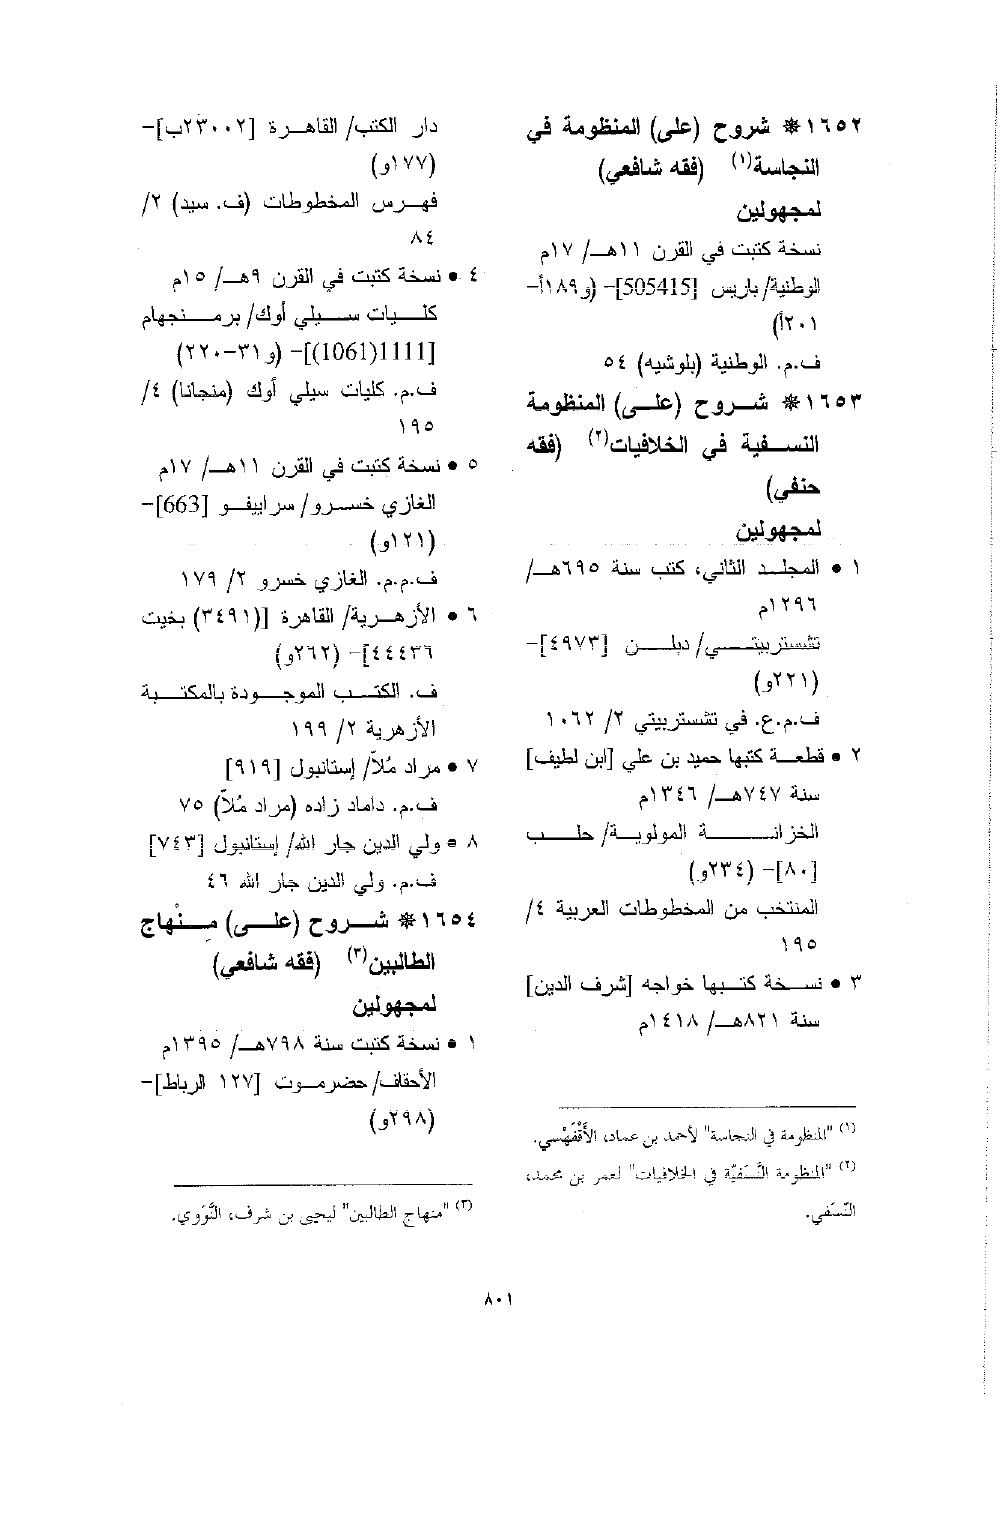 ١٦٥٢* شروح (على) المنظومة في
النجاسة(١) (فقه شافعي)
لمجهولين
نسخة كتبت في القرن ١١هـ/ ١٧م
الوطنية/ باريس [505415]- (و١٨٩أ-
٢٠١أ)
ف.م. الوطنية (بلوشيه) ٥٤
١٦٥٣* شروح (على) المنظومة
النسفية في الخلافيات(٢) (فقه
حنفي)
لمجهولين
١ • المجلد الثاني، كتب سنة ٦٩٥هـ/
١٢٩٦م
تشستربيتي/ دبلن [٤٩٧٣]-
(٢٢١و)
ف.م.ع. في تشستربيتي ٢/ ١٠٦٢
٢ • قطعة كتبها حميد بن علي [ابن لطيف]
سنة ٧٤٧هـ/ ١٣٤٦م
الخزانة المولوية/ حلب
[٨٠]- (٢٣٤و)
المنتخب من المخطوطات العربية ٤/
١٩٥
٣ • نسخة كتبها خواجه [شرف الدين]
سنة ٨٢١هـ/ ١٤١٨م
(١) "المنظومة في النجاسة" لأحمد بن عماد، الأَقْفَهْسي.
(٢) "المنظومة النَّسَفيّة في الخلافيات" لعمر بن محمد،
النّسَفي.
دار الكتب/ القاهرة [٢٣٠٠٢ب]-
(١٧٧و)
فهرس المخطوطات (ف. سيد) ٢/
٨٤
٤ • نسخة كتبت في القرن ٩هـ/ ١٥م
كليات سيلي أوك/ برمنجهام
[1111(1061)]- (و٣١-٢٢٠)
ف.م. كليات سيلي أوك (منجانا) ٤/
١٩٥
٥ • نسخة كتبت في القرن ١١هـ/ ١٧م
الغازي خسرو/ سراييفو [663]-
(١٢١و)
ف.م.م. الغازي خسرو ٢/ ١٧٩
٦ • الأزهرية/ القاهرة [(٣٤٩١) بخيت
٤٤٤٣٦]- (٢٦٢و)
ف. الكتب الموجودة بالمكتبة
الأزهرية ٢/ ١٩٩
٧ • مراد مُلاّ/ إستانبول [٩١٩]
ف.م. داماد زاده (مراد مُلاّ) ٧٥
٨ • ولي الدين جار الله/ إستانبول [٧٤٣]
ف.م. ولي الدين جار الله ٤٦
١٦٥٤* شروح (على) منهاج
الطالبين(٣) (فقه شافعي)
لمجهولين
١ • نسخة كتبت سنة ٧٩٨هـ/ ١٣٩٥م
الأحقاف/ حضرموت [١٢٧ الرباط]-
(٢٩٨و)
(٣) "منهاج الطالبين" ليحيى بن شرف، النَّوَوي.
٨٠١